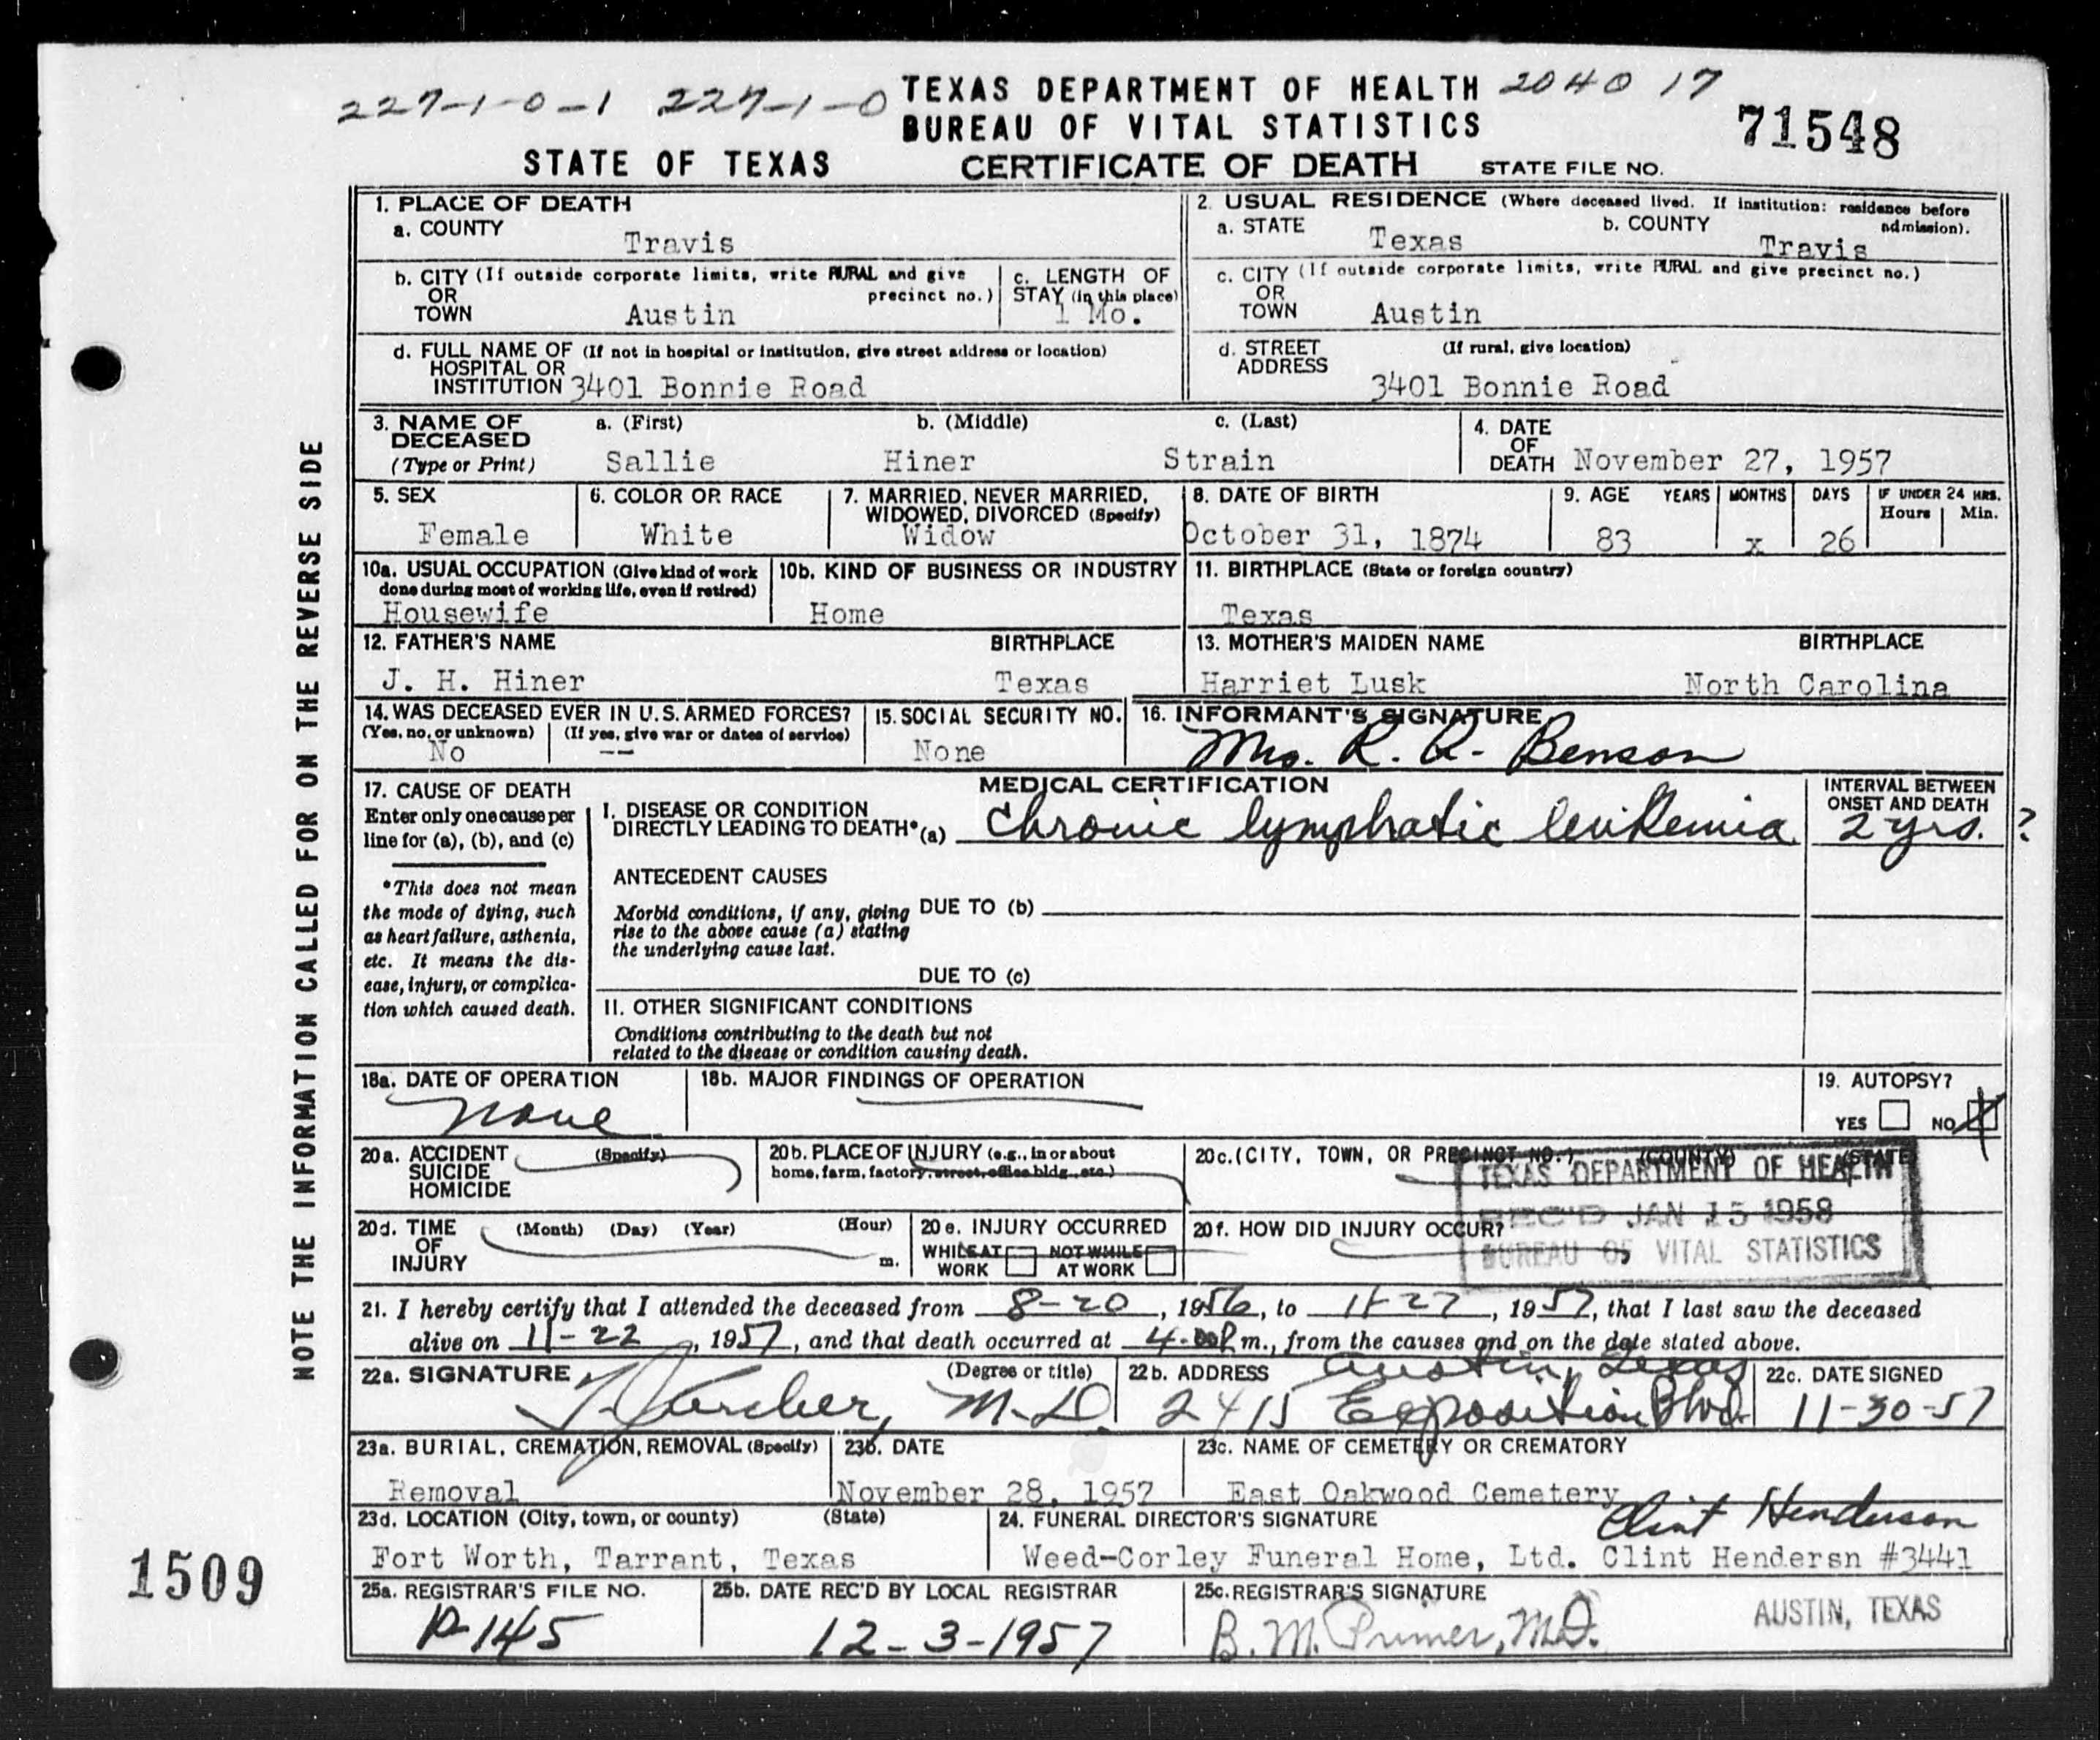 227-1-0-1 227-1-0 TEXAS DEPARTMENT OF HEALTH 2040 17
BUREAU OF VITAL STATISTICS 71548
STATE OF TEXAS CERTIFICATE OF DEATH STATE FILE NO.
NOTE THE INFORMATION CALLED FOR ON THE REVERSE SIDE
1. PLACE OF DEATH
a. COUNTY
Travis
2. USUAL RESIDENCE (Where deceased lived. If institution: residence before admission).
a. STATE Texas b. COUNTY Travis
b. CITY (If outside corporate limits, write RURAL and give precinct no.)
OR
TOWN Austin
c. LENGTH OF
STAY (in this place)
1 Mo.
c. CITY (If outside corporate limits, write RURAL and give precinct no.)
OR
TOWN Austin
d. FULL NAME OF (If not in hospital or institution, give street address or location)
HOSPITAL OR
INSTITUTION 3401 Bonnie Road
d. STREET (If rural, give location)
ADDRESS
3401 Bonnie Road
3. NAME OF DECEASED
(Type or Print)
a. (First) b. (Middle) c. (Last)
Sallie Hiner Strain
4. DATE
OF
DEATH November 27, 1957
5. SEX
Female
6. COLOR OR RACE
White
7. MARRIED, NEVER MARRIED,
WIDOWED, DIVORCED (Specify)
Widow
8. DATE OF BIRTH
October 31, 1874
9. AGE YEARS MONTHS DAYS IF UNDER 24 HRS.
Hours Min.
83 x 26
10a. USUAL OCCUPATION (Give kind of work
done during most of working life, even if retired)
Housewife
10b. KIND OF BUSINESS OR INDUSTRY
Home
11. BIRTHPLACE (State or foreign country)
Texas
12. FATHER'S NAME BIRTHPLACE
J. H. Hiner Texas
13. MOTHER'S MAIDEN NAME BIRTHPLACE
Harriet Lusk North Carolina
14. WAS DECEASED EVER IN U.S. ARMED FORCES?
(Yes, no, or unknown) (If yes, give war or dates of service)
No --
15. SOCIAL SECURITY NO.
None
16. INFORMANT'S SIGNATURE
Mrs. R. R. Benson
17. CAUSE OF DEATH
Enter only one cause per
line for (a), (b), and (c)
*This does not mean
the mode of dying, such
as heart failure, asthenia,
etc. It means the dis-
ease, injury, or complica-
tion which caused death.
MEDICAL CERTIFICATION
I. DISEASE OR CONDITION
DIRECTLY LEADING TO DEATH* (a) Chronic lymphatic leukemia
INTERVAL BETWEEN
ONSET AND DEATH
2 yrs. ?
ANTECEDENT CAUSES
Morbid conditions, if any, giving DUE TO (b)
rise to the above cause (a) stating
the underlying cause last.
DUE TO (c)
II. OTHER SIGNIFICANT CONDITIONS
Conditions contributing to the death but not
related to the disease or condition causing death.
18a. DATE OF OPERATION
none
18b. MAJOR FINDINGS OF OPERATION
19. AUTOPSY?
YES NO X
20a. ACCIDENT (Specify)
SUICIDE
HOMICIDE
20b. PLACE OF INJURY (e.g., in or about
home, farm, factory, street, office bldg., etc.)
20c. (CITY, TOWN, OR PRECINCT NO.) (COUNTY) (STATE)
TEXAS DEPARTMENT OF HEALTH
REC'D JAN 15 1958
BUREAU OF VITAL STATISTICS
20d. TIME (Month) (Day) (Year) (Hour)
OF
INJURY m.
20e. INJURY OCCURRED
WHILE AT NOT WHILE
WORK AT WORK
20f. HOW DID INJURY OCCUR?
21. I hereby certify that I attended the deceased from 8-20, 1956, to 11-27, 1957, that I last saw the deceased
alive on 11-22, 1957, and that death occurred at 4:00P m., from the causes and on the date stated above.
22a. SIGNATURE (Degree or title)
M.D.
22b. ADDRESS Austin, Texas
2415 Exposition Blvd.
22c. DATE SIGNED
11-30-57
23a. BURIAL, CREMATION, REMOVAL (Specify)
Removal
23b. DATE
November 28, 1957
23c. NAME OF CEMETERY OR CREMATORY
East Oakwood Cemetery
23d. LOCATION (City, town, or county) (State)
Fort Worth, Tarrant, Texas
24. FUNERAL DIRECTOR'S SIGNATURE Clint Henderson
Weed-Corley Funeral Home, Ltd. Clint Hendersn #3441
1509
25a. REGISTRAR'S FILE NO.
P-145
25b. DATE REC'D BY LOCAL REGISTRAR
12-3-1957
25c. REGISTRAR'S SIGNATURE
B. M. Primer, M.D. AUSTIN, TEXAS